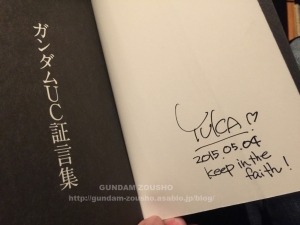 ガンダムUC証言集
YUKA!
2015.05.04
keep in the
faith!
GUNDAM-ZOUSHO
http://gundam-zousho.asablo.jp/blog/